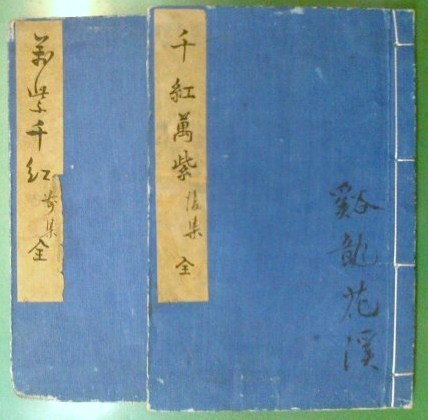 谿龍花溪
千紅萬紫 後集 全
萬紫千紅 前集 全